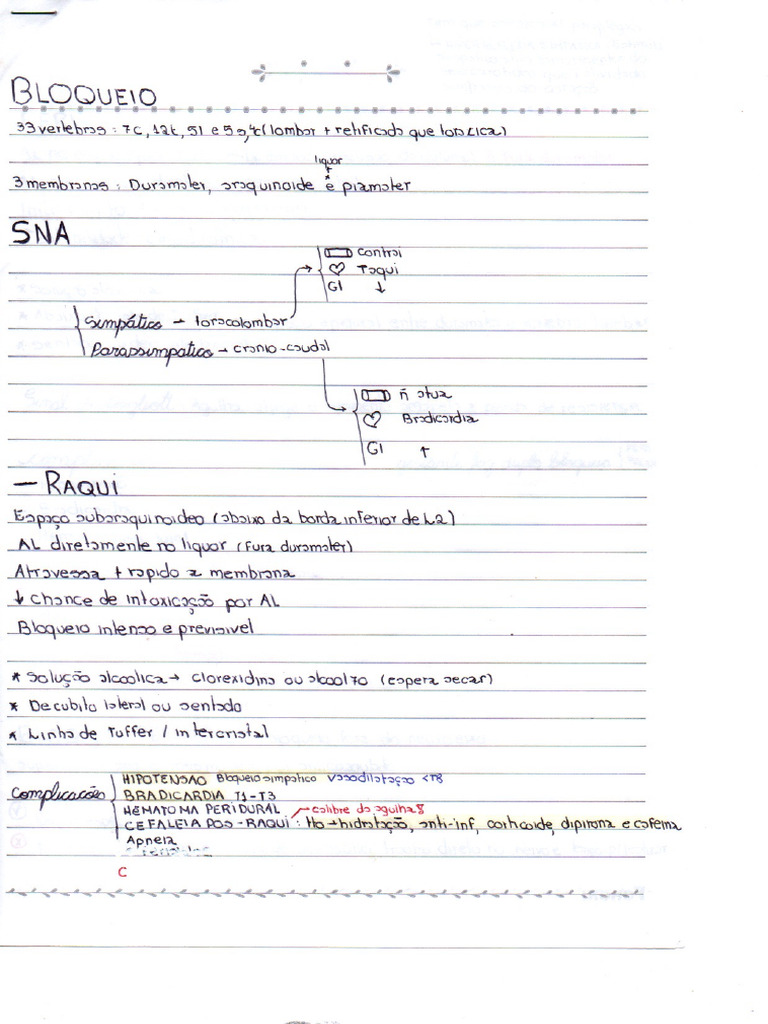 BLOQUEIO
33 vertebras: 7C, 12t, 5l e 5s, 4c (lombar + retificada que toracica)
liquor
3 membranas: Duramater, araquinoide e piamater
SNA
Contrai
Taqui
GI ↓
Simpático → toracolombar
Parassimpatico → cranio-caudal
ñ atua
Bradicardia
GI ↑
— RAQUI
Espaço subaraquinoideo (abaixo da borda inferior de L2)
AL diretamente no liquor (Fura duramater)
Atravessa + rapido a membrana
↓ Chance de intoxicação por AL
Bloqueio intenso e previsivel
* Solução alcoolica → clorexidina ou alcool 70 (espera secar)
* Decubito lateral ou sentado
* Linha de Tuffer / intercristal
Complicacões
HIPOTENSAO Bloqueio simpatico Vasodilatação <T8
BRADICARDIA T1-T3
HEMATOMA PERIDURAL calibre da agulha
CEFALEIA POS-RAQUI: Ho → hidratação, anti-inf, corticoide, dipirona e cafeina
Apneia
C